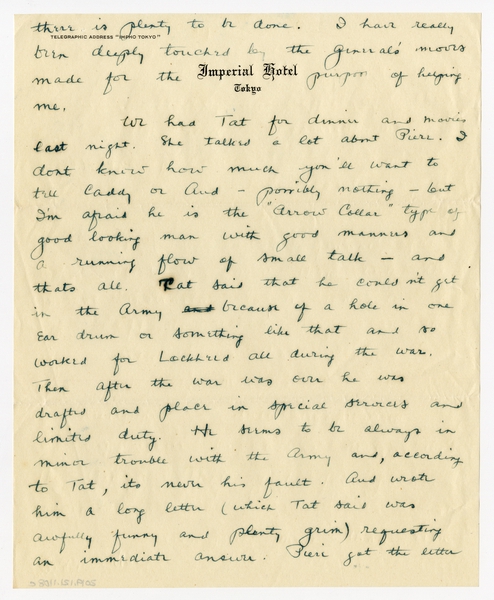 there is plenty to be done. I have really
TELEGRAPHIC ADDRESS "IMPHO TOKYO"
been deeply touched by the General's moves
Imperial Hotel
made for the purpose of helping
Tokyo
me.
We had Tat for dinner and movies
last night. She talked a lot about Pieri. I
dont know how much you'll want to
tell Caddy or And – possibly nothing – but
I'm afraid he is the "Arrow Collar" type of
good looking man with good manners and
a running flow of small talk – and
thats all. Tat said that he couldn't get
in the Army and because of a hole in one
ear drum or something like that and so
worked for Lockheed all during the war.
Then after the war was over he was
drafted and place in special services and
limited duty. He seems to be always in
minor trouble with the Army and, according
to Tat, its never his fault. And wrote
him a long letter (which Tat said was
awfully funny and plenty grim) requesting
an immediate answer. Pieri got the letter